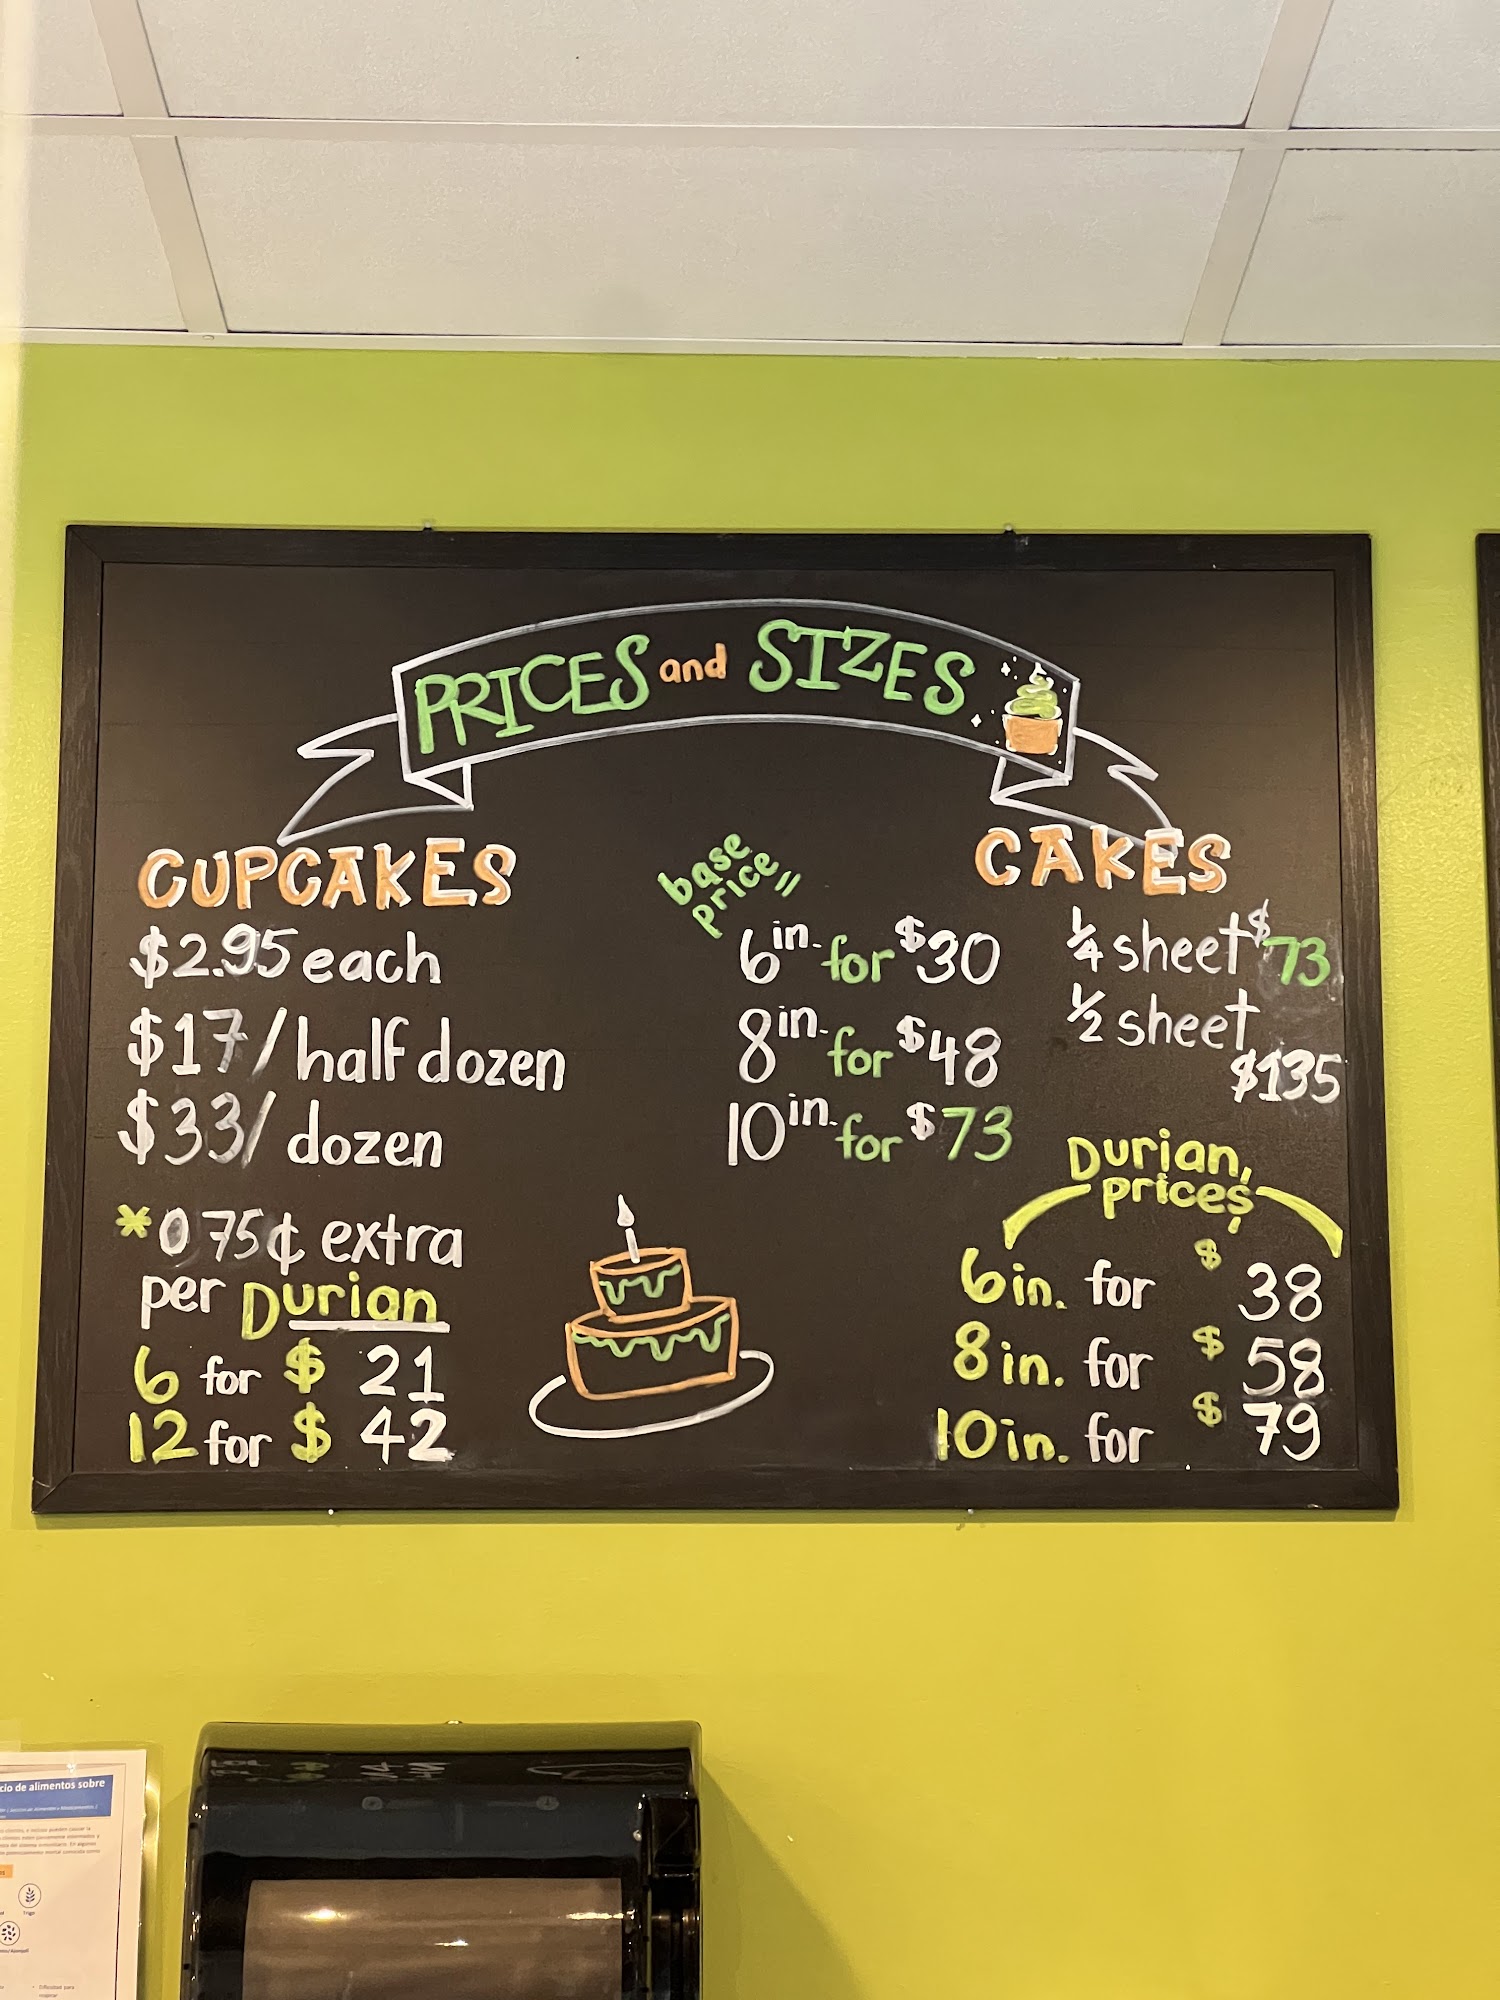 PRICES and SIZES
CUPCAKES
$2.95 each
$17/half dozen
$33/dozen
*0 75¢ extra
per Durian
6 for $ 21
12 for $ 42
base
price
CAKES
6 in. for $30
8 in. for $48
10 in. for $73
1/4 sheet $73
1/2 sheet
$135
Durian
prices
6 in. for $ 38
8 in. for $ 58
10 in. for $ 79
cio de alimentos sobre
Trigo